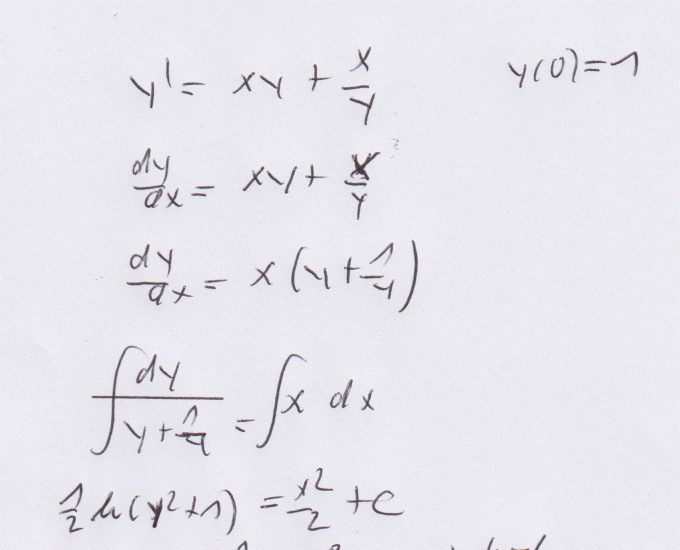 y' = xy + x/y    y(0) = 1
dy/dx = xy + x/y
dy/dx = x(y + 1/y)
∫ dy/(y + 1/y) = ∫ x dx
1/2 ln(y² + 1) = x²/2 + c